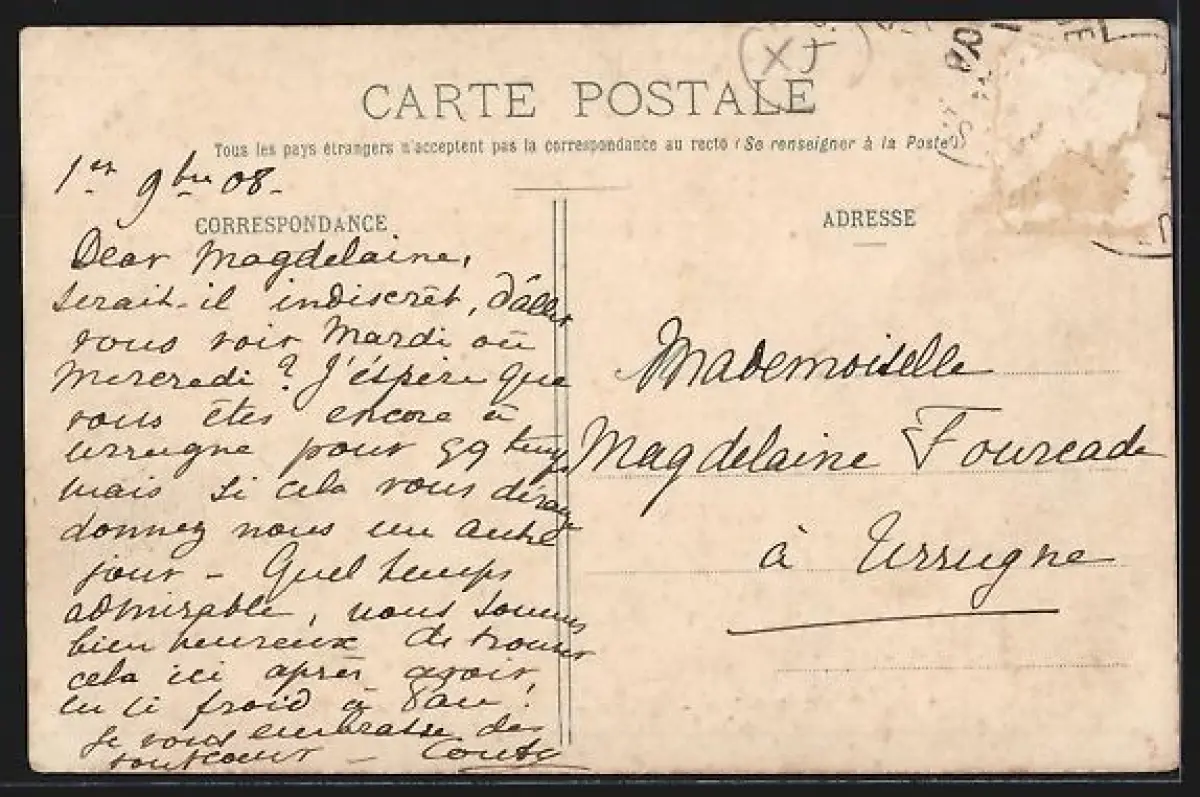 XJ
CARTE POSTALE
Tous les pays étrangers n'acceptent pas la correspondance au recto (Se renseigner à la Poste)
1er 9bre 08-
CORRESPONDANCE
Dear Magdelaine,
serait-il indiscrêt, d'aller
vous voir Mardi ou
Mercredi ? J'éspère que
vous êtes encore à
Urrugne pour qq temps
mais si cela vous dérange
donnez nous un autre
jour - Quel temps
admirable, nous sommes
bien heureux de trouver
cela ici aprèr avoir
eu si froid à Pau !
Je vous embrasse de
tout coeur -
ADRESSE
Mademoiselle
Magdelaine Fourcade
à Urrugne